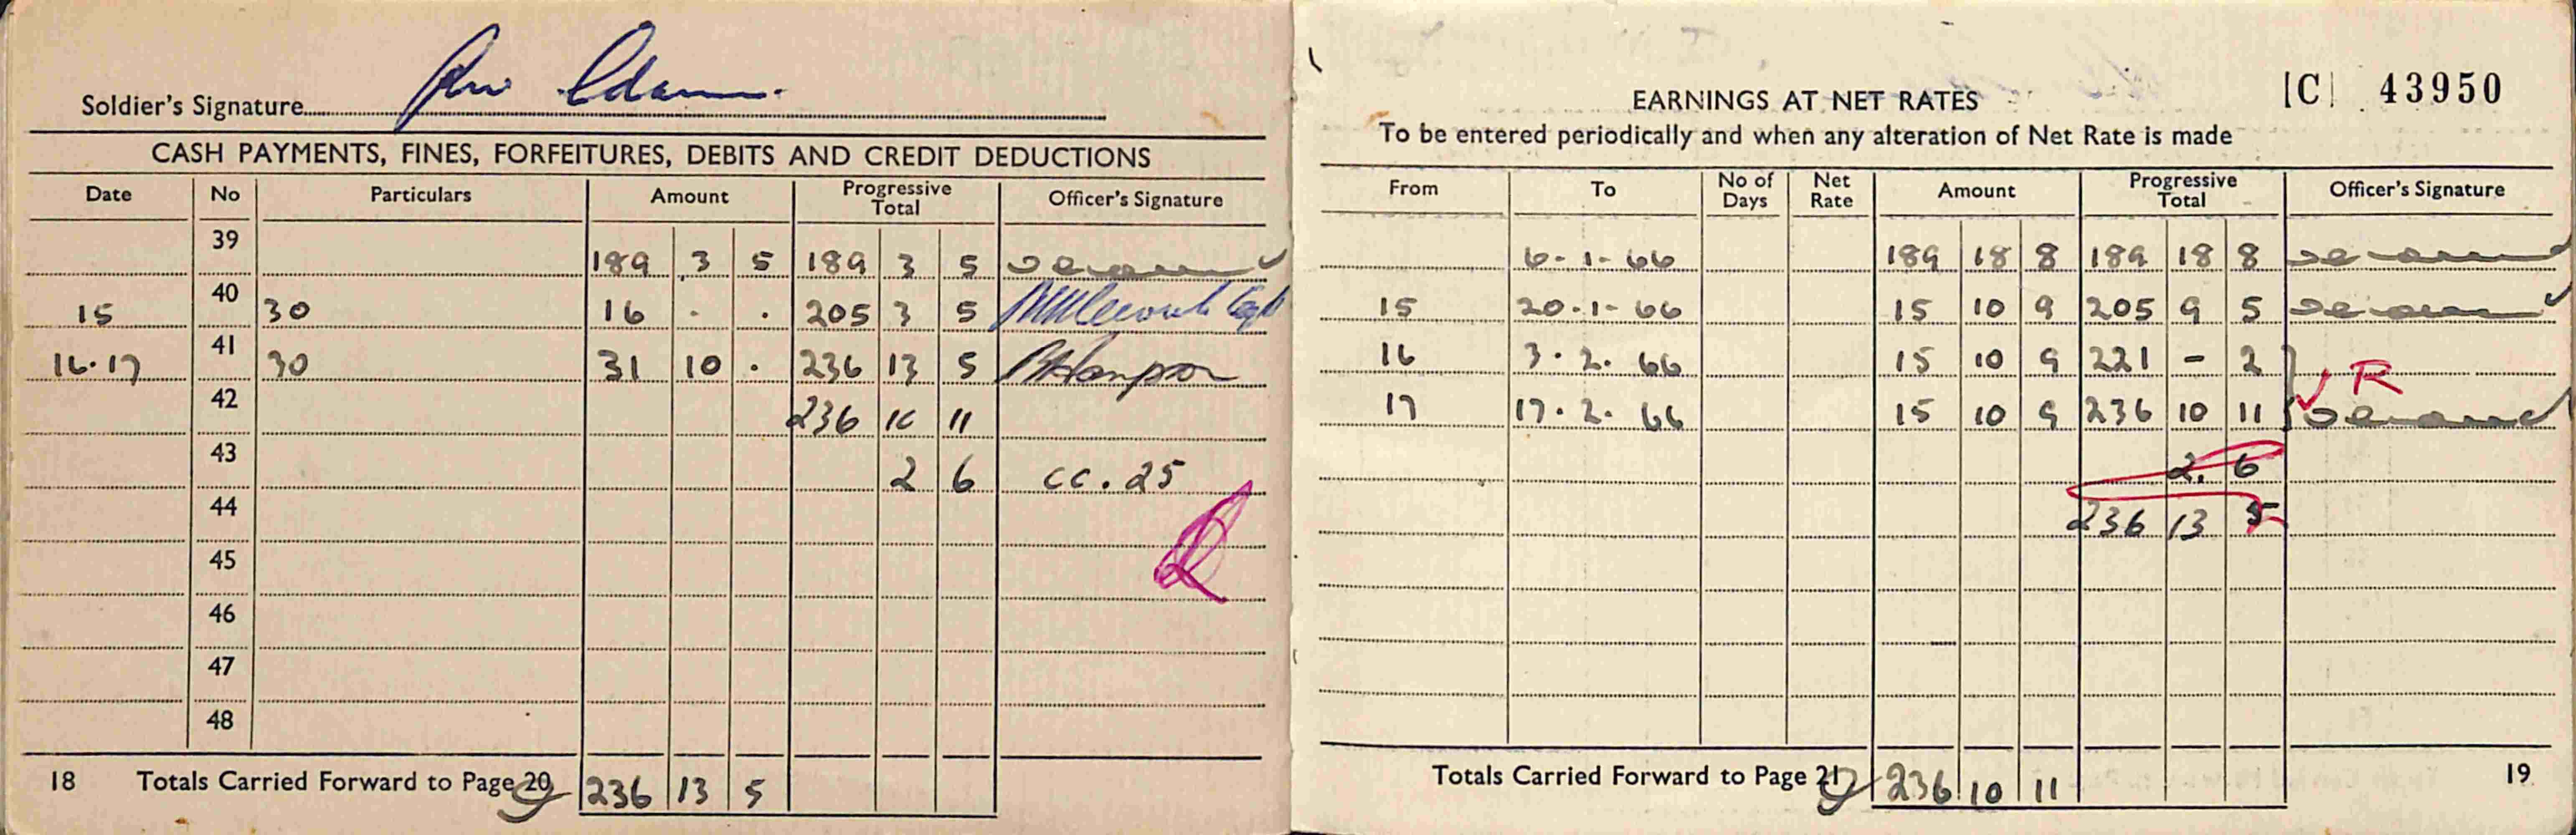 Soldier's Signature
CASH PAYMENTS, FINES, FORFEITURES, DEBITS AND CREDIT DEDUCTIONS
Date No Particulars Amount Progressive Total Officer's Signature
39 189 3 5 189 3 5
15 40 30 16 - . 205 3 5
16.17 41 30 31 10 . 236 13 5
42 236 10 11
43 2 6 cc. 25
44
45
46
47
48
18 Totals Carried Forward to Page 20 236 13 5
[C] 43950
EARNINGS AT NET RATES
To be entered periodically and when any alteration of Net Rate is made
From To No of Days Net Rate Amount Progressive Total Officer's Signature
6-1-66 189 18 8 189 18 8
15 20-1-66 15 10 9 205 9 5
16 3.2.66 15 10 9 221 - 2 R
17 17.2.66 15 10 9 236 10 11
2. 6
236 13 5
Totals Carried Forward to Page 21 236 10 11
19